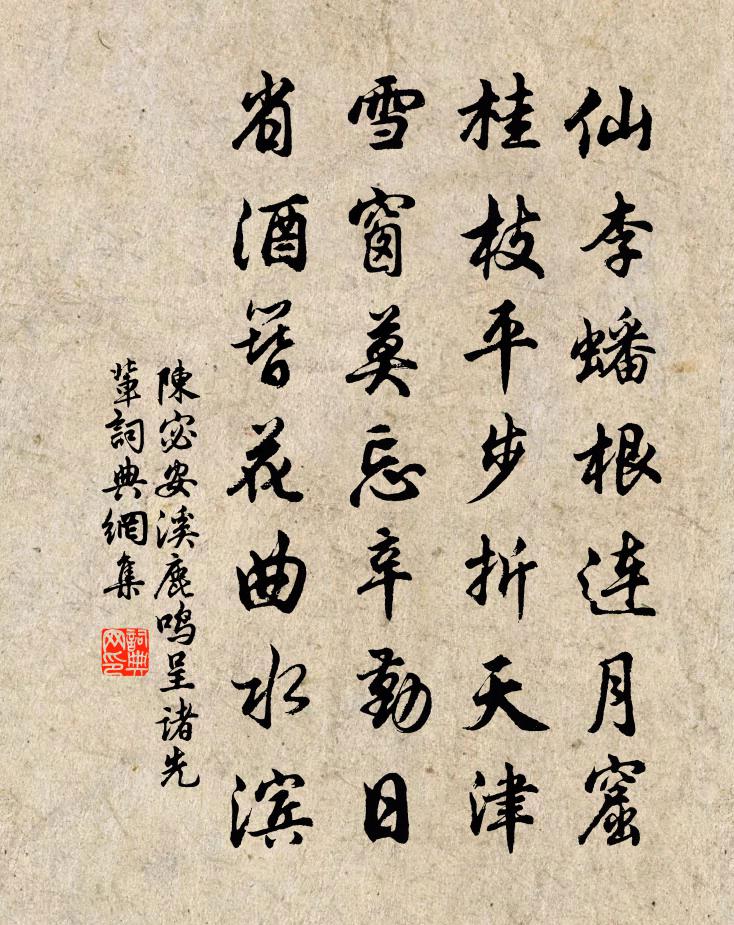 仙李蟠根连月窟
桂枝平步折天津
雪窗莫忘辛勤日
省酒簪花曲水滨
陳宓安溪鹿鸣呈诸先
輩詞典網集
詞典
网印